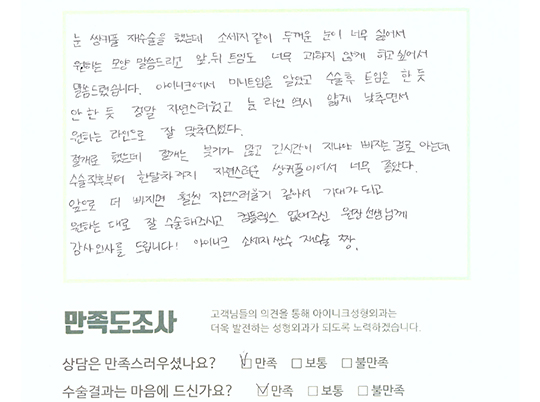 눈 쌍커풀 재수술을 했는데 소세지 같이 두꺼운 눈이 너무 싫어서
원하는 모양 말씀드리고 앞,뒤 트임도 너무 과하지 않게 하고싶어서
말씀드렸습니다. 아이니크에서 미니트임을 알았고 수술후 트임은 한 듯
안 한 듯 정말 자연스러웠고 눈 라인 역시 얇게 낮추면서
원하는 라인으로 잘 맞춰주셨다.
절개로 했는데 절개는 붓기가 많고 긴시간이 지나야 빠지는 걸로 아는데
수술직후부터 한달차 까지 자연스러운 쌍커풀이어서 너무 좋았다.
앞으로 더 빠지면 훨씬 자연스러울거 같아서 기대가 되고
원하는 대로 잘 수술해주시고 컴플렉스 없애주신 원장선생님께
감사인사를 드립니다! 아이니크 소세지쌍수 재수술 짱.
만족도조사
고객님들의 의견을 통해 아이니크성형외과는
더욱 발전하는 성형외과가 되도록 노력하겠습니다.
상담은 만족스러우셨나요? ☑만족 □보통 □불만족
수술결과는 마음에 드신가요? ☑만족 □보통 □불만족